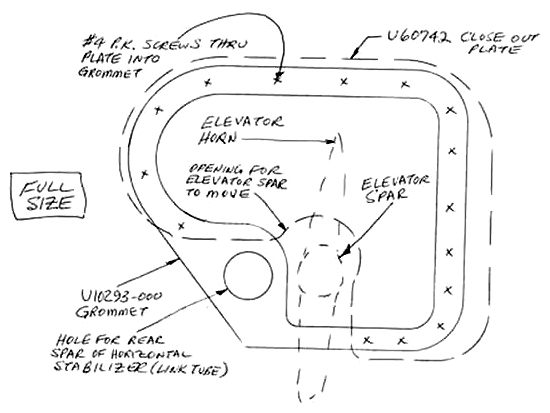 #4 P.K. SCREWS THRU
PLATE INTO
GROMMET
U60742 CLOSE OUT
PLATE
ELEVATOR
HORN
OPENING FOR
ELEVATOR SPAR
TO MOVE
ELEVATOR
SPAR
FULL
SIZE
U10293-000
GROMMET
HOLE FOR REAR
SPAR OF HORIZONTAL
STABILIZER (LINK TUBE)